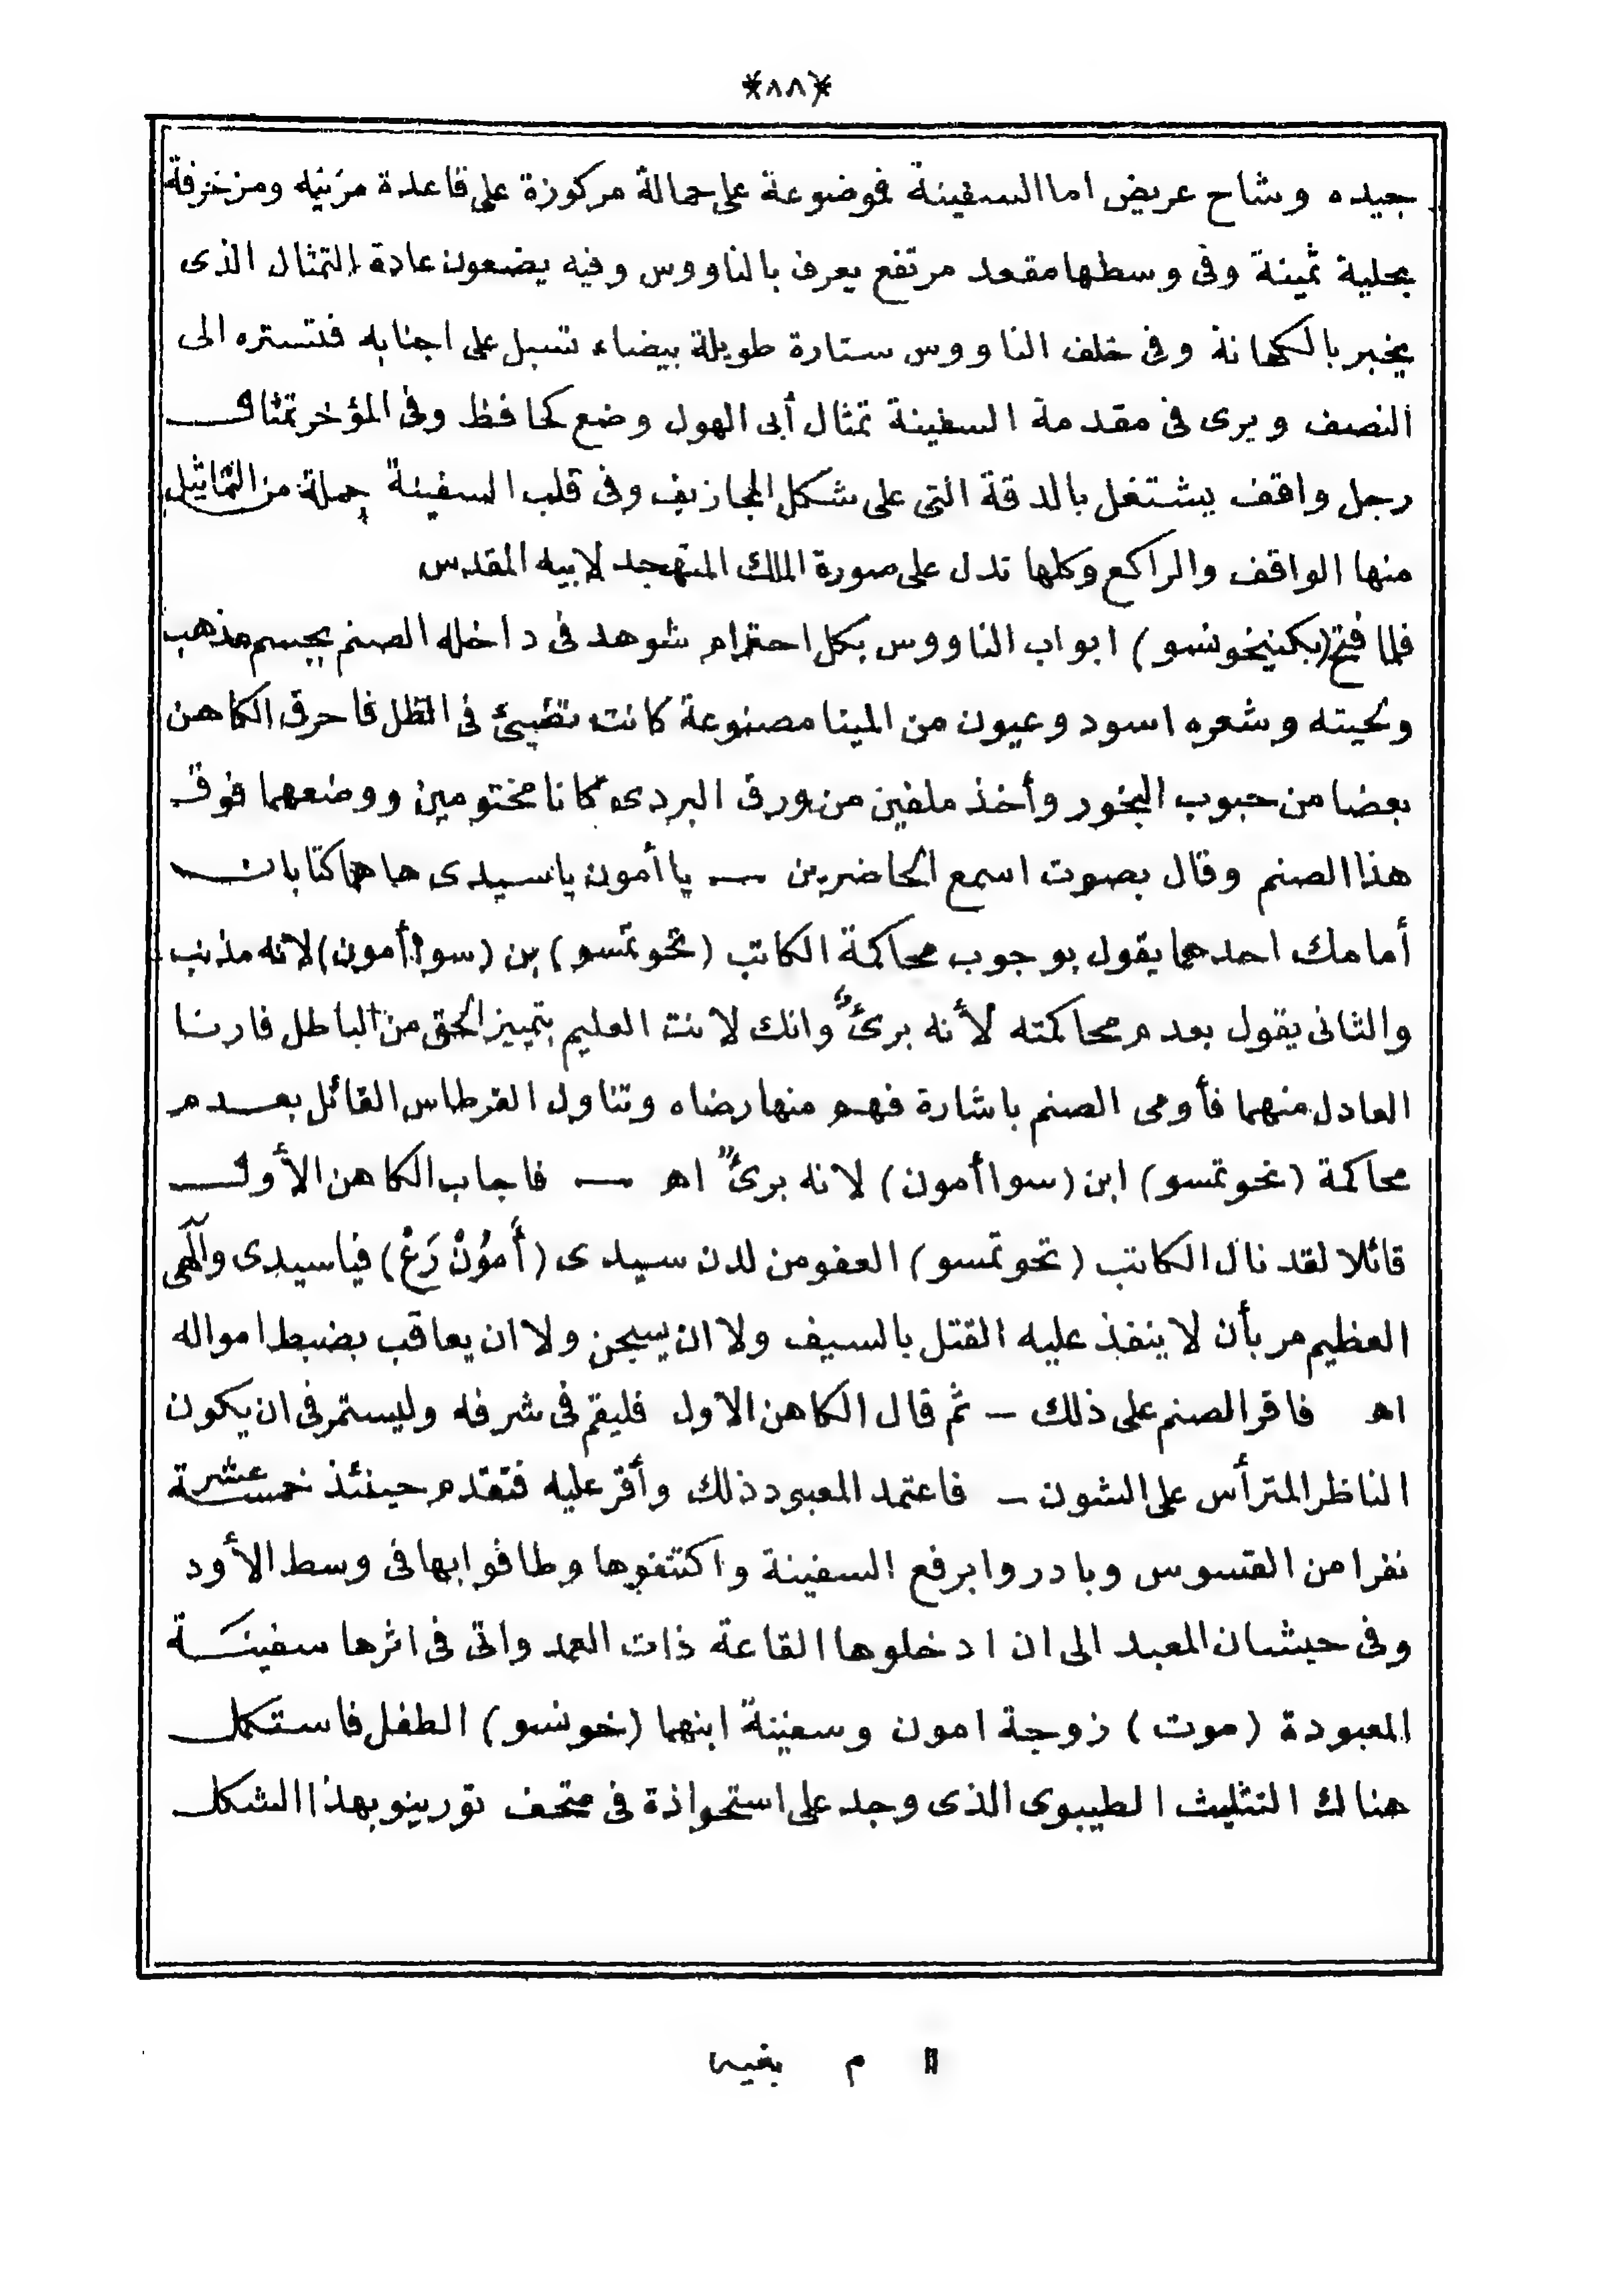 *٨٨*
بجيده وشاح عريض اما السفينة فموضوعة على حمالة مركوزة على قاعدة مزينه ومزخرفة
بحلية ثمينة وفى وسطها مقعد مرتفع يعرف بالناووس وفيه يضعون عادة التمثال الذى
يخبر بالكهانة وفى خلف الناووس ستارة طويلة بيضاء تسبل على اجنابه فتستره الى
النصف ويرى فى مقدمة السفينة تمثال أبى الهول وضع كحافظ وفى المؤخر تمثال
رجل واقف يشتغل بالدقة التى على شكل المجازيف وفى قلب السفينة جملة من التماثيل
منها الواقف والراكع وكلها تدل على صورة الملك المتهجد لابيه المقدس
فلما فتح (بكنيخونسو) ابواب الناووس بكل احترام شوهد فى داخله الصنم بجسم مذهب
ولحيته وشعره اسود وعيون من المينا مصنوعة كانت تضيئ فى الظل فاحرق الكاهن
بعضا من حبوب البخور وأخذ ملفين من ورق البردى كانا مختومين ووضعهما فوق
هذا الصنم وقال بصوت اسمع الحاضرين — يا أمون يا سيدى ها هما كتابات
أمامك احدهما يقول بوجوب محاكمة الكاتب (تحوتمسو) بن (سوا أمون) لانه مذنب
والثانى يقول بعدم محاكمته لأنه برئ وانك لانت العليم بتمييز الحق من الباطل فارنا
العادل منهما فأومى الصنم باشارة فهم منها رضاه وتناول القرطاس القائل بعدم
محاكمة (تحوتمسو) ابن (سوا أمون) لانه برئ اه — فاجاب الكاهن الأول
قائلا لقد نال الكاتب (تحوتمسو) العفو من لدن سيدى (أَمُوْنْ رَعْ) فيا سيدى وآلهى
العظيم مر بأن لا ينفذ عليه القتل بالسيف ولا ان يسجن ولا ان يعاقب بضبط امواله
اه فاقر الصنم على ذلك — ثم قال الكاهن الاول فليقم فى شرفه وليستمر فى ان يكون
الناظر المترأس على الشون — فاعتمد المعبود ذلك وأقر عليه فتقدم حينئذ خمسة عشرة
نفرا من القسوس وبادروا برفع السفينة واكتنفوها وطافوا بها فى وسط الأود
وفى حيشان المعبد الى ان ادخلوها القاعة ذات العمد واتى فى اثرها سفينة
المعبودة (موت) زوجة امون وسفينة ابنهما (خونسو) الطفل فاستكمل
هنالك التثليث الطيبوى الذى وجد على استحواذة فى متحف تورينو بهذا الشكل
١١ م بغيه